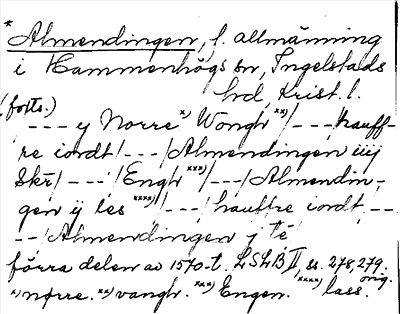 * Almendingen, f. allmänning
i Hammenhögs sn, Ingelstads
hd, Krist. l.
(forts.)
/--- y Norre *) Wongh **)/---/hauff-
re iordt/---/Almendingen iiij
Skr/---/Engh ***)/---/Almendin-
gen ij les ****)/---/hauffre iordt, --
--/Almendingen j te
förra delen av 1570-t. LSLB II, ss. 278, 279.
orig.
*) nørre. **) vangh. ***) Engen. ****) lass.